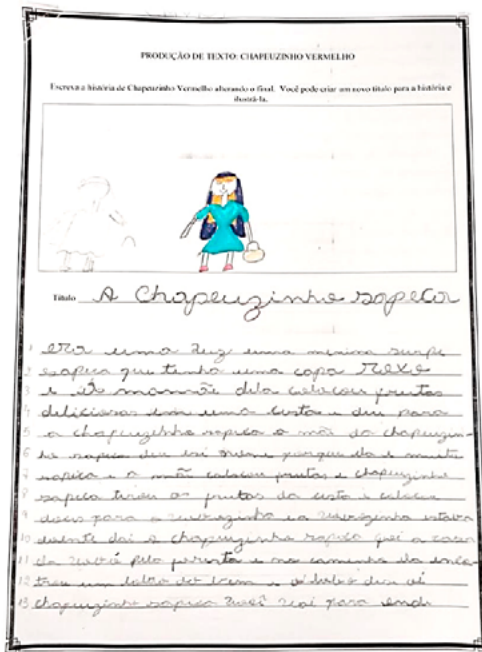 PRODUÇÃO DE TEXTO: CHAPEUZINHO VERMELHO
Escreva a história de Chapeuzinho Vermelho alterando o final. Você pode criar um novo título para a história e
ilustrá-la.
Título A Chapeuzinho sapeca
1 era uma vez uma menina
2 sapeca que tenha uma capa roxo
3 e mamãe dela colocou frutas
4 deliciosas em uma cesta e deu para
5 a chapeuzinho sapeca a mãe da chapeuzin-
6 ho sapeca deu porque ela e muito
7 sapeca e a mãe colocou frutas e chapeuzinho
8 sapeca tirou as frutas da cesta e colocou
9 doces para a vovozinha e a vovozinha estava
10 doente dai a chapeuzinho sapeca foi a casa
11 da vovó pela foresta e no caminho ela encon
12 trou um lobo do bem e o lobo
13 chapeuzinho sapeca você vai para onde